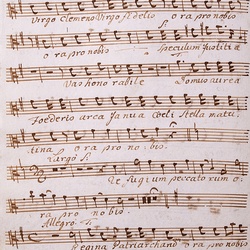 Virgo Clemens Virgo fidelis ora pro nobis
ora pro nobis Speculum Justitiae
Vas honorabile Domus aurea
Foederis arca Janua Coeli Stella matu-
tina ora pro nobis.
Refugium peccatorum o-
ra pro nobis.
Allegro.
Regina Patriarcharum ora pro nobis